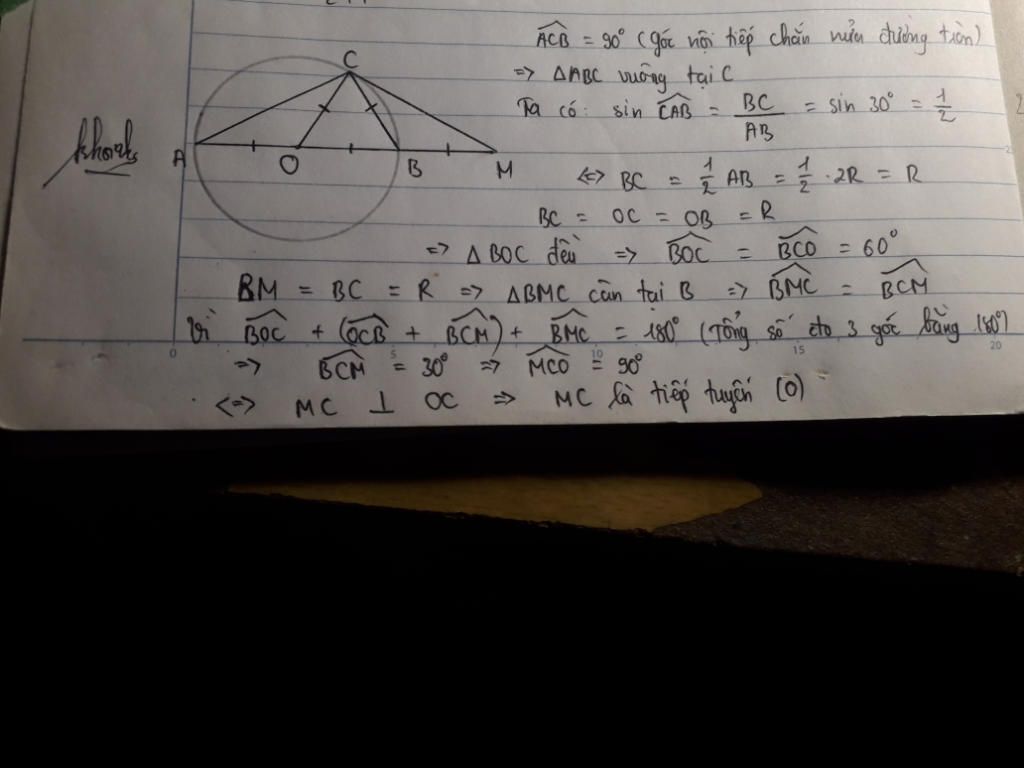 $\widehat{ACB}$ = 90° (góc nội tiếp chắn nửa đường tròn)
=> ΔABC vuông tại C
Ta có: sin $\widehat{CAB}$ = $\frac{BC}{AB}$ = sin 30° = $\frac{1}{2}$
<=> BC = $\frac{1}{2}$ AB = $\frac{1}{2}$ · 2R = R
BC = OC = OB = R
=> Δ BOC đều => $\widehat{BOC}$ = $\widehat{BCO}$ = 60°
BM = BC = R => ΔBMC cân tại B => $\widehat{BMC}$ = $\widehat{BCM}$
Vì $\widehat{BOC}$ + ($\widehat{OCB}$ + $\widehat{BCM}$) + $\widehat{BMC}$ = 180° (Tổng số đo 3 góc bằng 180°)
=> $\widehat{BCM}$ = 30° => $\widehat{MCO}$ = 90°
<=> MC ⊥ OC => MC là tiếp tuyến (O)
C
A
O
B
M
0
5
10
15
20